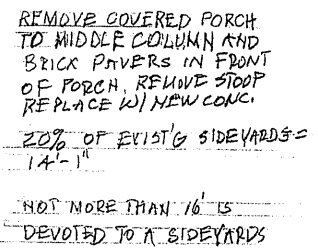 REMOVE COVERED PORCH
TO MIDDLE COLUMN AND
BRICK PAVERS IN FRONT
OF PORCH. REMOVE STOOP
REPLACE W/ NEW CONC.
20% OF EXIST'G SIDEYARDS=
14'-1"
NOT MORE THAN 16' IS
DEVOTED TO A SIDEYARDS